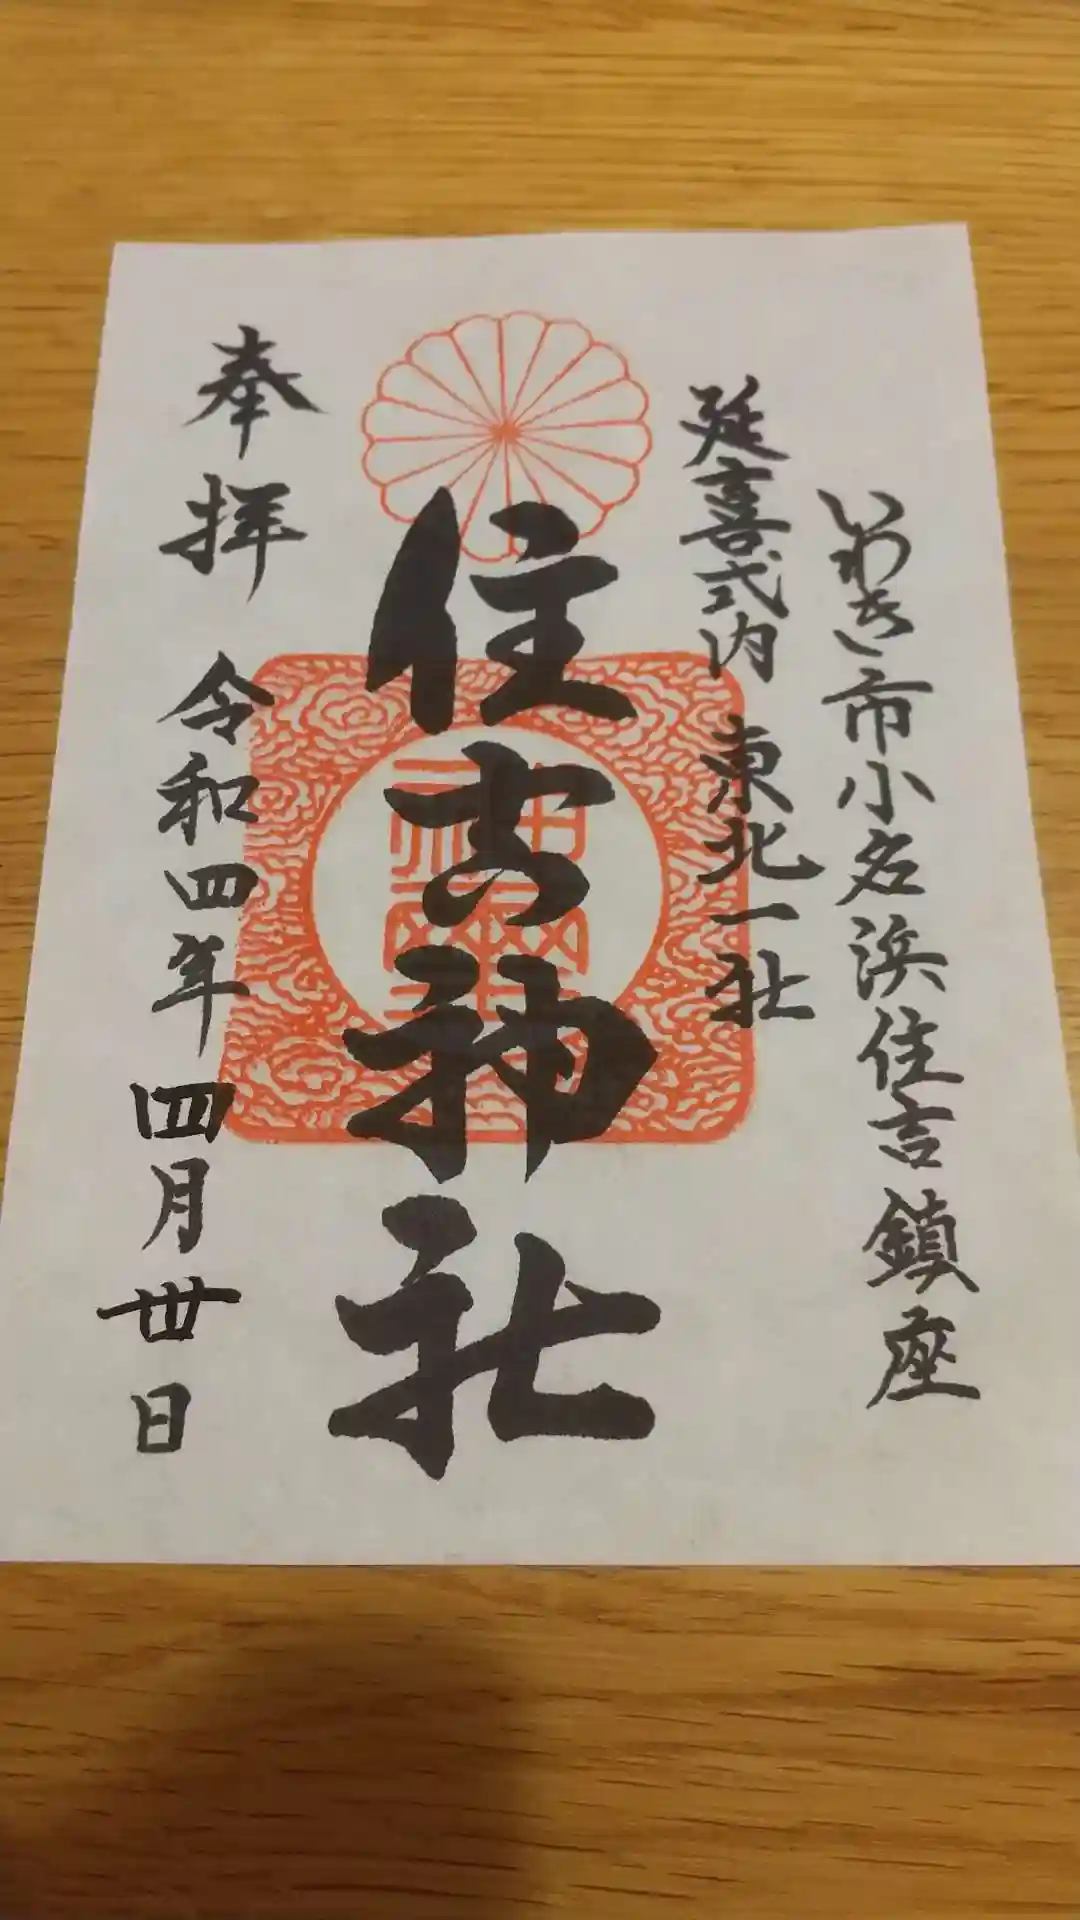 いわき市小名浜住吉鎮座
延喜式内 東北一社
住吉神社
奉拝
令和四年 四月卅日